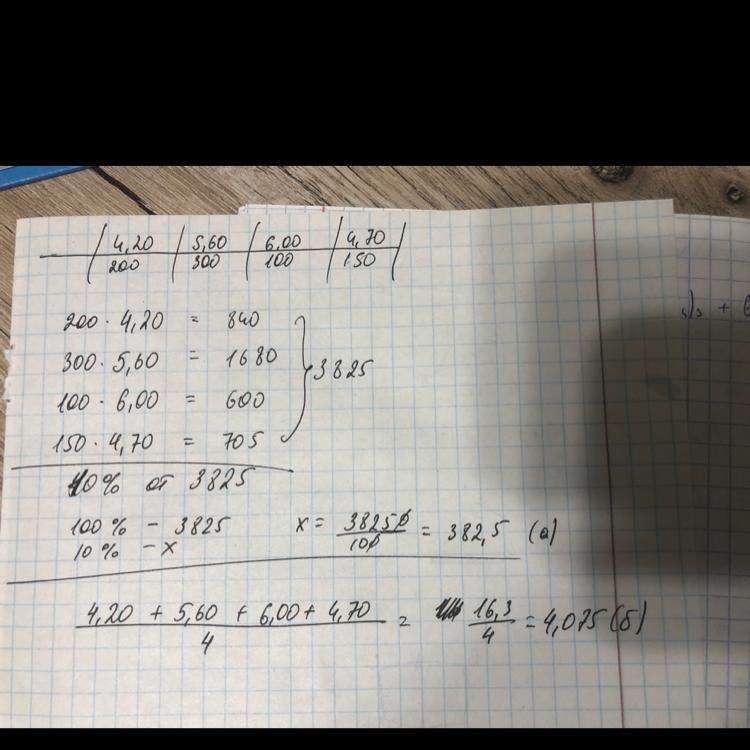 4,20 | 5,60 | 6,00 | 4,70
200 | 300 | 100 | 150
200 · 4,20 = 840
300 · 5,60 = 1680
100 · 6,00 = 600
150 · 4,70 = 705
3825
10% от 3825
100% - 3825
10% - x
x = 38250/100 = 382,5 (а)
4,20 + 5,60 + 6,00 + 4,70 / 4 = 16,3/4 = 4,075 (б)